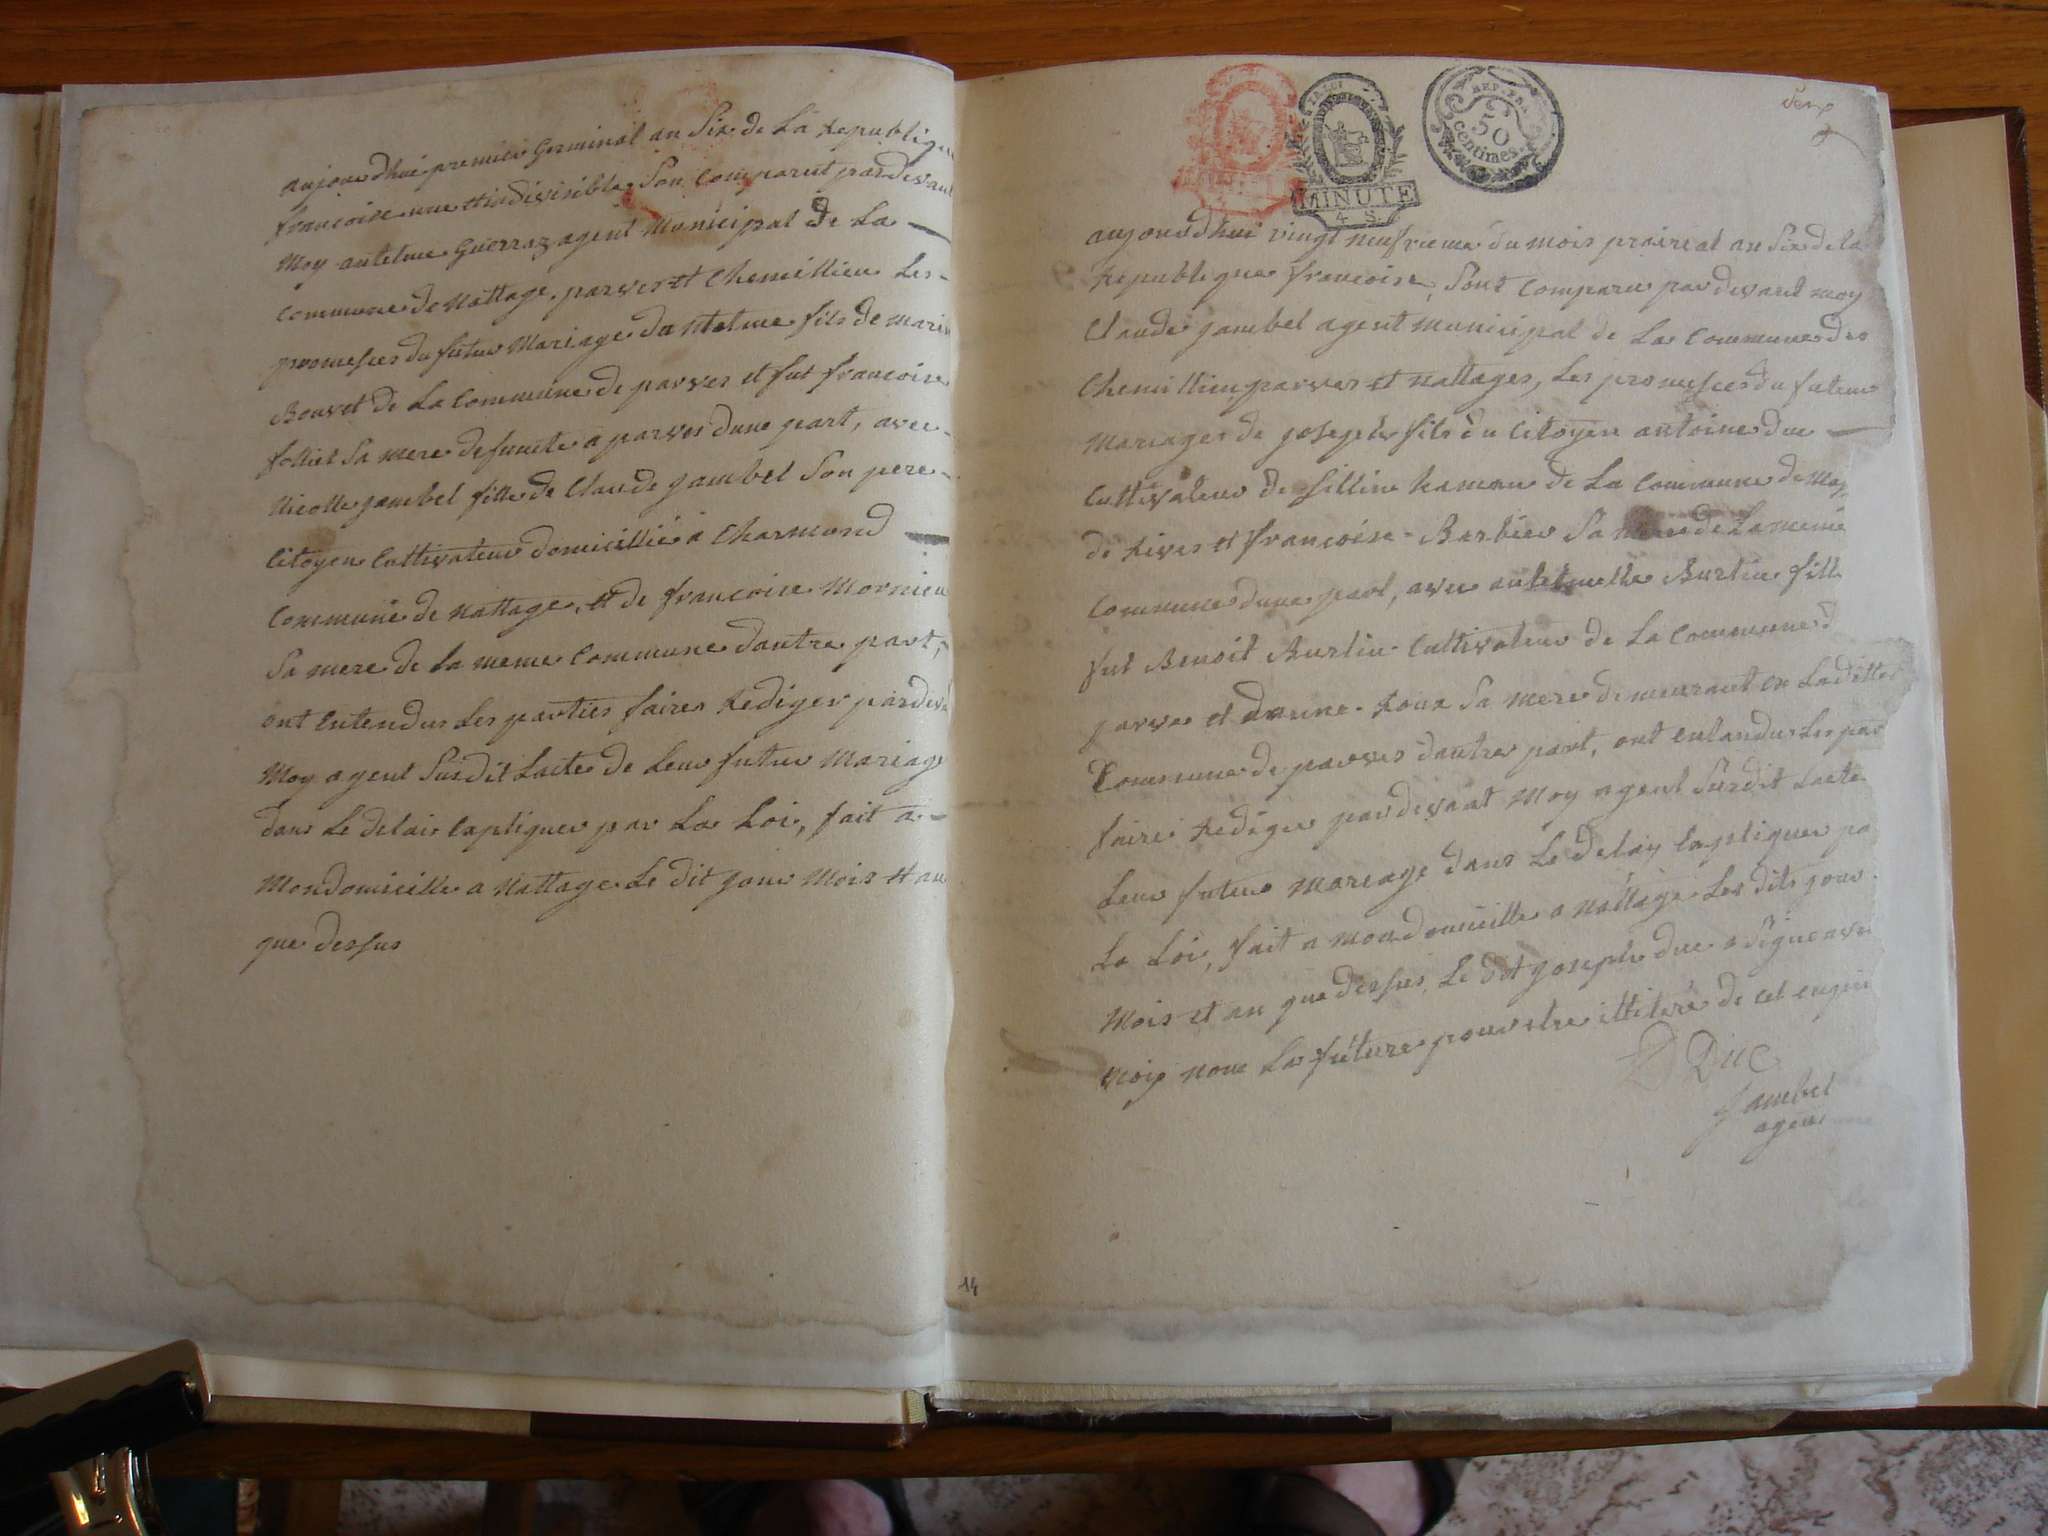 aujourdhui premier Germinal an Six de La Republique
francoise une et indivisible, Son Comparut pardevant
Moy antelme Guerraz agent Municipal de La
Commune de Nattage, parves et Chemillieu Les
promesses du futur Mariage dantelme fils de marin
Bouvet de La Commune de parves et fut francoise
folliet Sa mere defunte a parves dune part, avec
Nicolle jambel fille de Claude jambel Son pere
Citoyen Cultivateur domicillié a Charmond
Commune de Nattage, et de francoise Mornieu
Sa mere de La meme Commune dautre part,
ont Entendus Les parties faires Rediger pardev
Moy agent Susdit Lacte de Leur futur Mariage
dans Le delais Expliquer par La Loi, fait a
Mondomicille a Nattage Le dit jour Mois et an
que dessus
14
MINUTE
4 S.
REP. FRA.
50
centimes
aujourdhui vingt neufvieme du mois prairial an Six de la
Republique francoise, Sont Comparu pardevant moy
Claude jambel agent municipal de La Commune de
Chemillieu parves et Nattages, Les promesses du futur
Mariages de joseph fils du Citoyen antoine duc
Cultivateur de Sillin hameau de La Commune de
de Rives et francoise Barbier Sa Mere de La meme
Commune dune part, avec antelmette Burtin fille
fut Benoit Burtin Cultivateur de La Commune d
parve et danne Roux Sa mere demeurant en Laditte
Commune de parves dautre part, ont Entendus Les par
faire Rediger pardevant Moy agent Susdit Lacte
Leur futur Mariage dans Le delay Expliquer pa
La Loi, fait a mon domicille a Nattage Les dits jour
Mois et an que dessus, Le dit joseph duc a Signé avec
Moy non La future pour etre illiteré de cet enquis
Duc
Jambel
agent